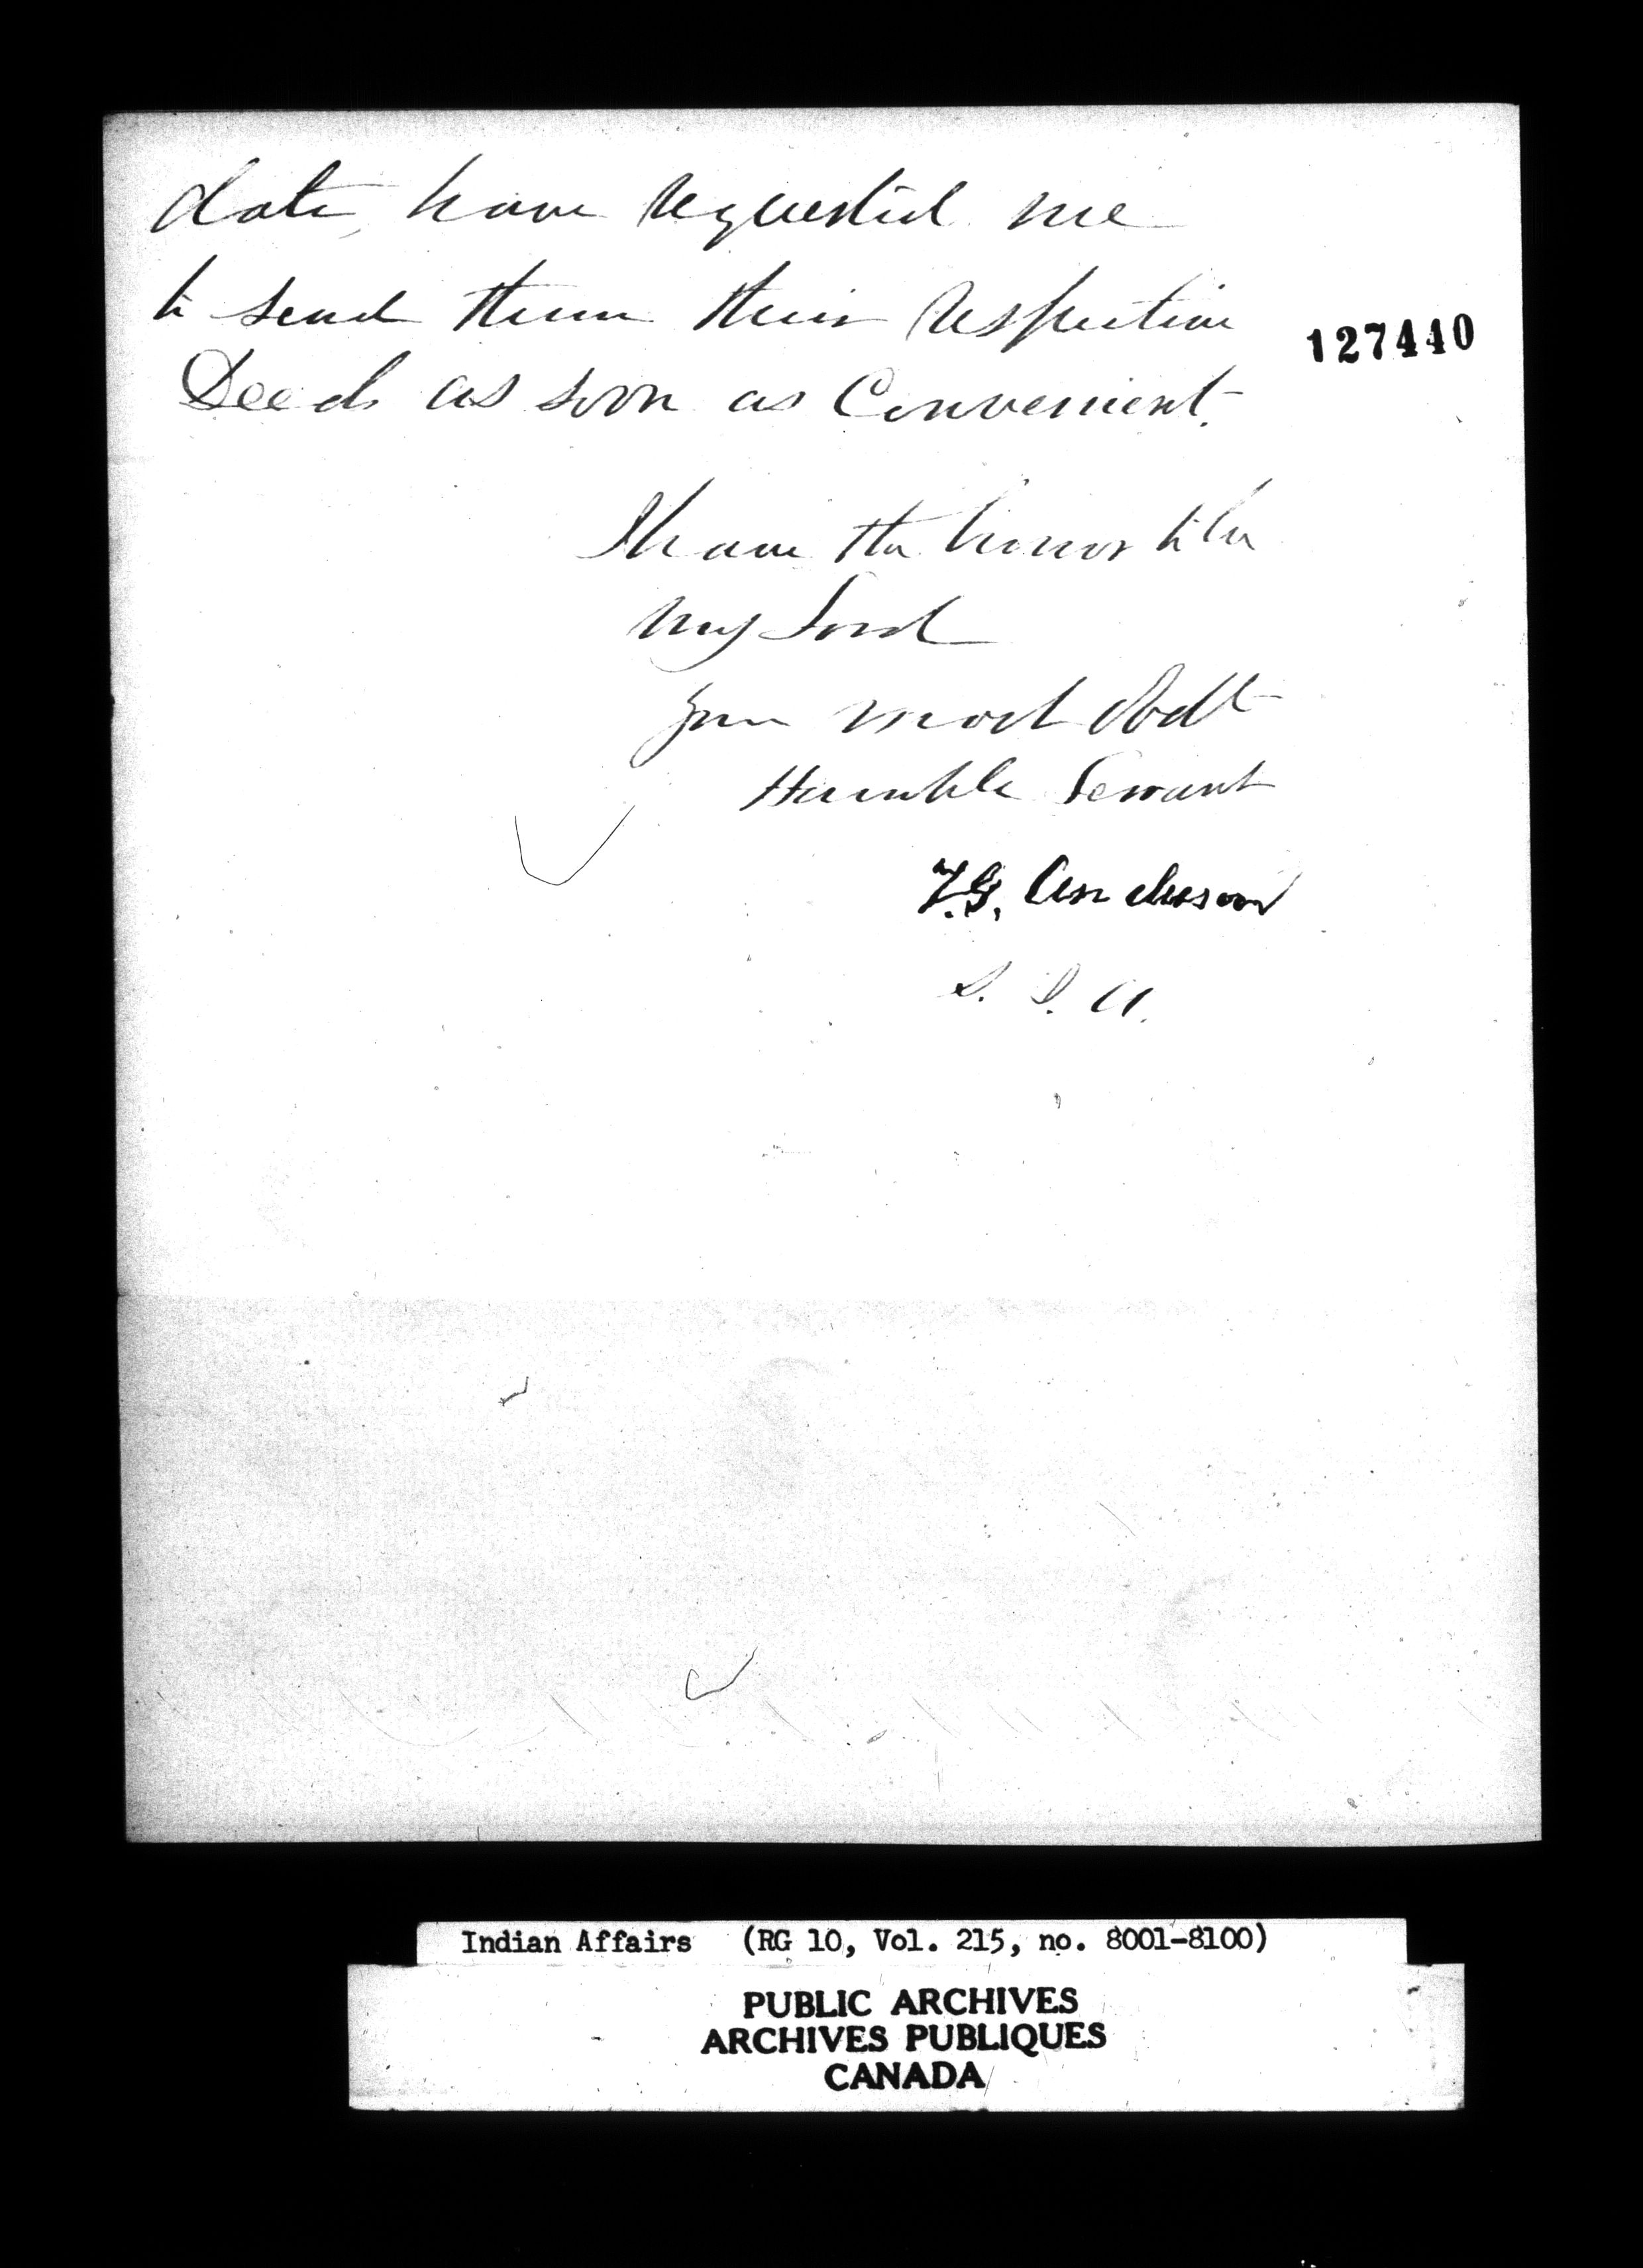 date, have requested me
to send them their respective
Deeds as soon as Convenient.
127440
I have the honor to be
My Lord
your most Obdt
Humble Servant
T.G. Anderson
S. I. A.
Indian Affairs (RG 10, Vol. 215, no. 8001-8100)
PUBLIC ARCHIVES
ARCHIVES PUBLIQUES
CANADA